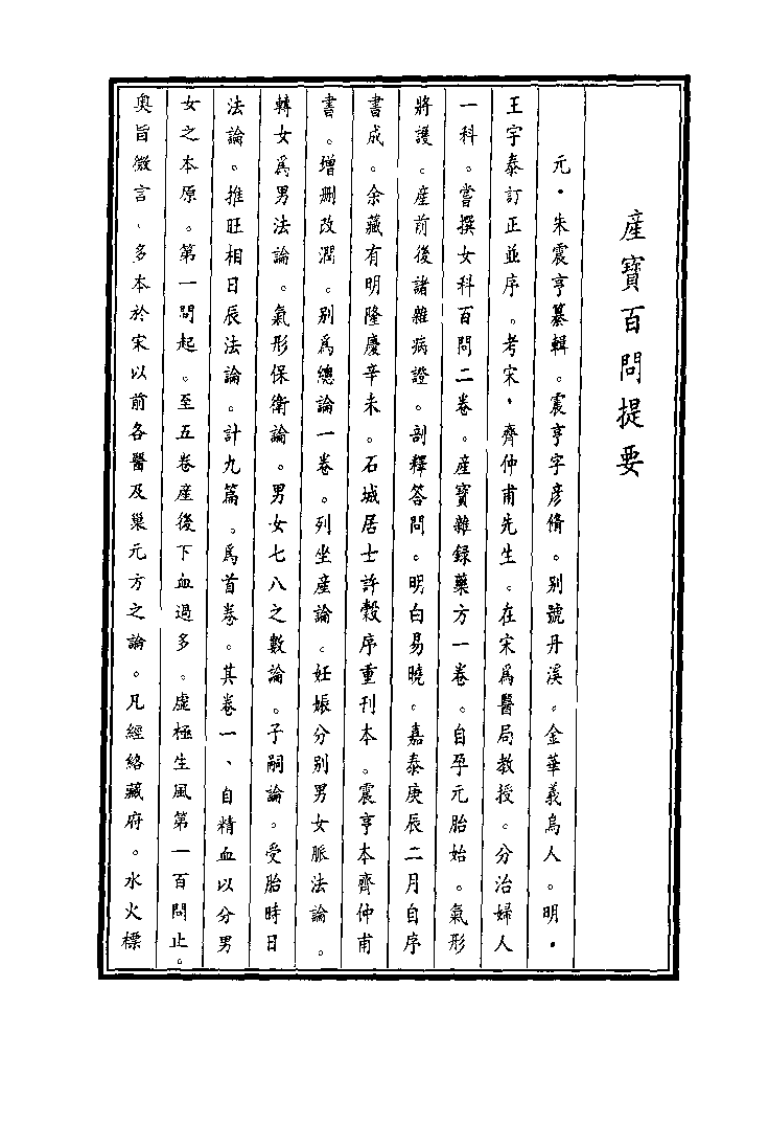 產寶百問提要
元・朱震亨纂輯。震亨字彥脩。別號丹溪。金華義烏人。明・
王宇泰訂正並序。考宋・齊仲甫先生。在宋爲醫局教授。分治婦人
一科。嘗撰女科百問二卷。產寶雜録藥方一卷。自孕元胎始。氣形
將護。產前後諸雜病證。剖釋答問。明白易曉。嘉泰庚辰二月自序
書成。余藏有明隆慶辛未。石城居士許穀序重刊本。震亨本齊仲甫
書。增删改潤。別爲總論一卷。列坐產論。妊娠分別男女脈法論。
轉女爲男法論。氣形保衛論。男女七八之數論。子嗣論。受胎時日
法論。推旺相日辰法論。計九篇。爲首卷。其卷一、自精血以分男
女之本原。第一問起。至五卷產後下血過多。虛極生風第一百問止。
奧旨微言、多本於宋以前各醫及巢元方之論。凡經絡藏府。水火標